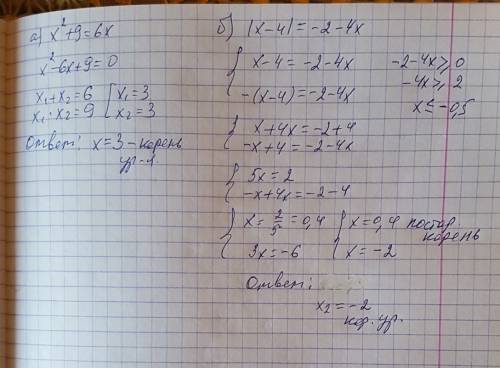 а) x²+9=6x
x²-6x+9=0
x₁+x₂=6
x₁·x₂=9
x₁=3
x₂=3
Ответ: x=3 - корень
ур-я.
б) |x-4|=-2-4x
x-4=-2-4x
-(x-4)=-2-4x
-2-4x⩾0
-4x⩾2
x≤-0,5
x+4x=-2+4
-x+4=-2-4x
5x=2
-x+4x=-2-4
x=2/5=0,4
3x=-6
x=0,4 постор.
корень
x=-2
Ответ:
x₂=-2
кор. ур.